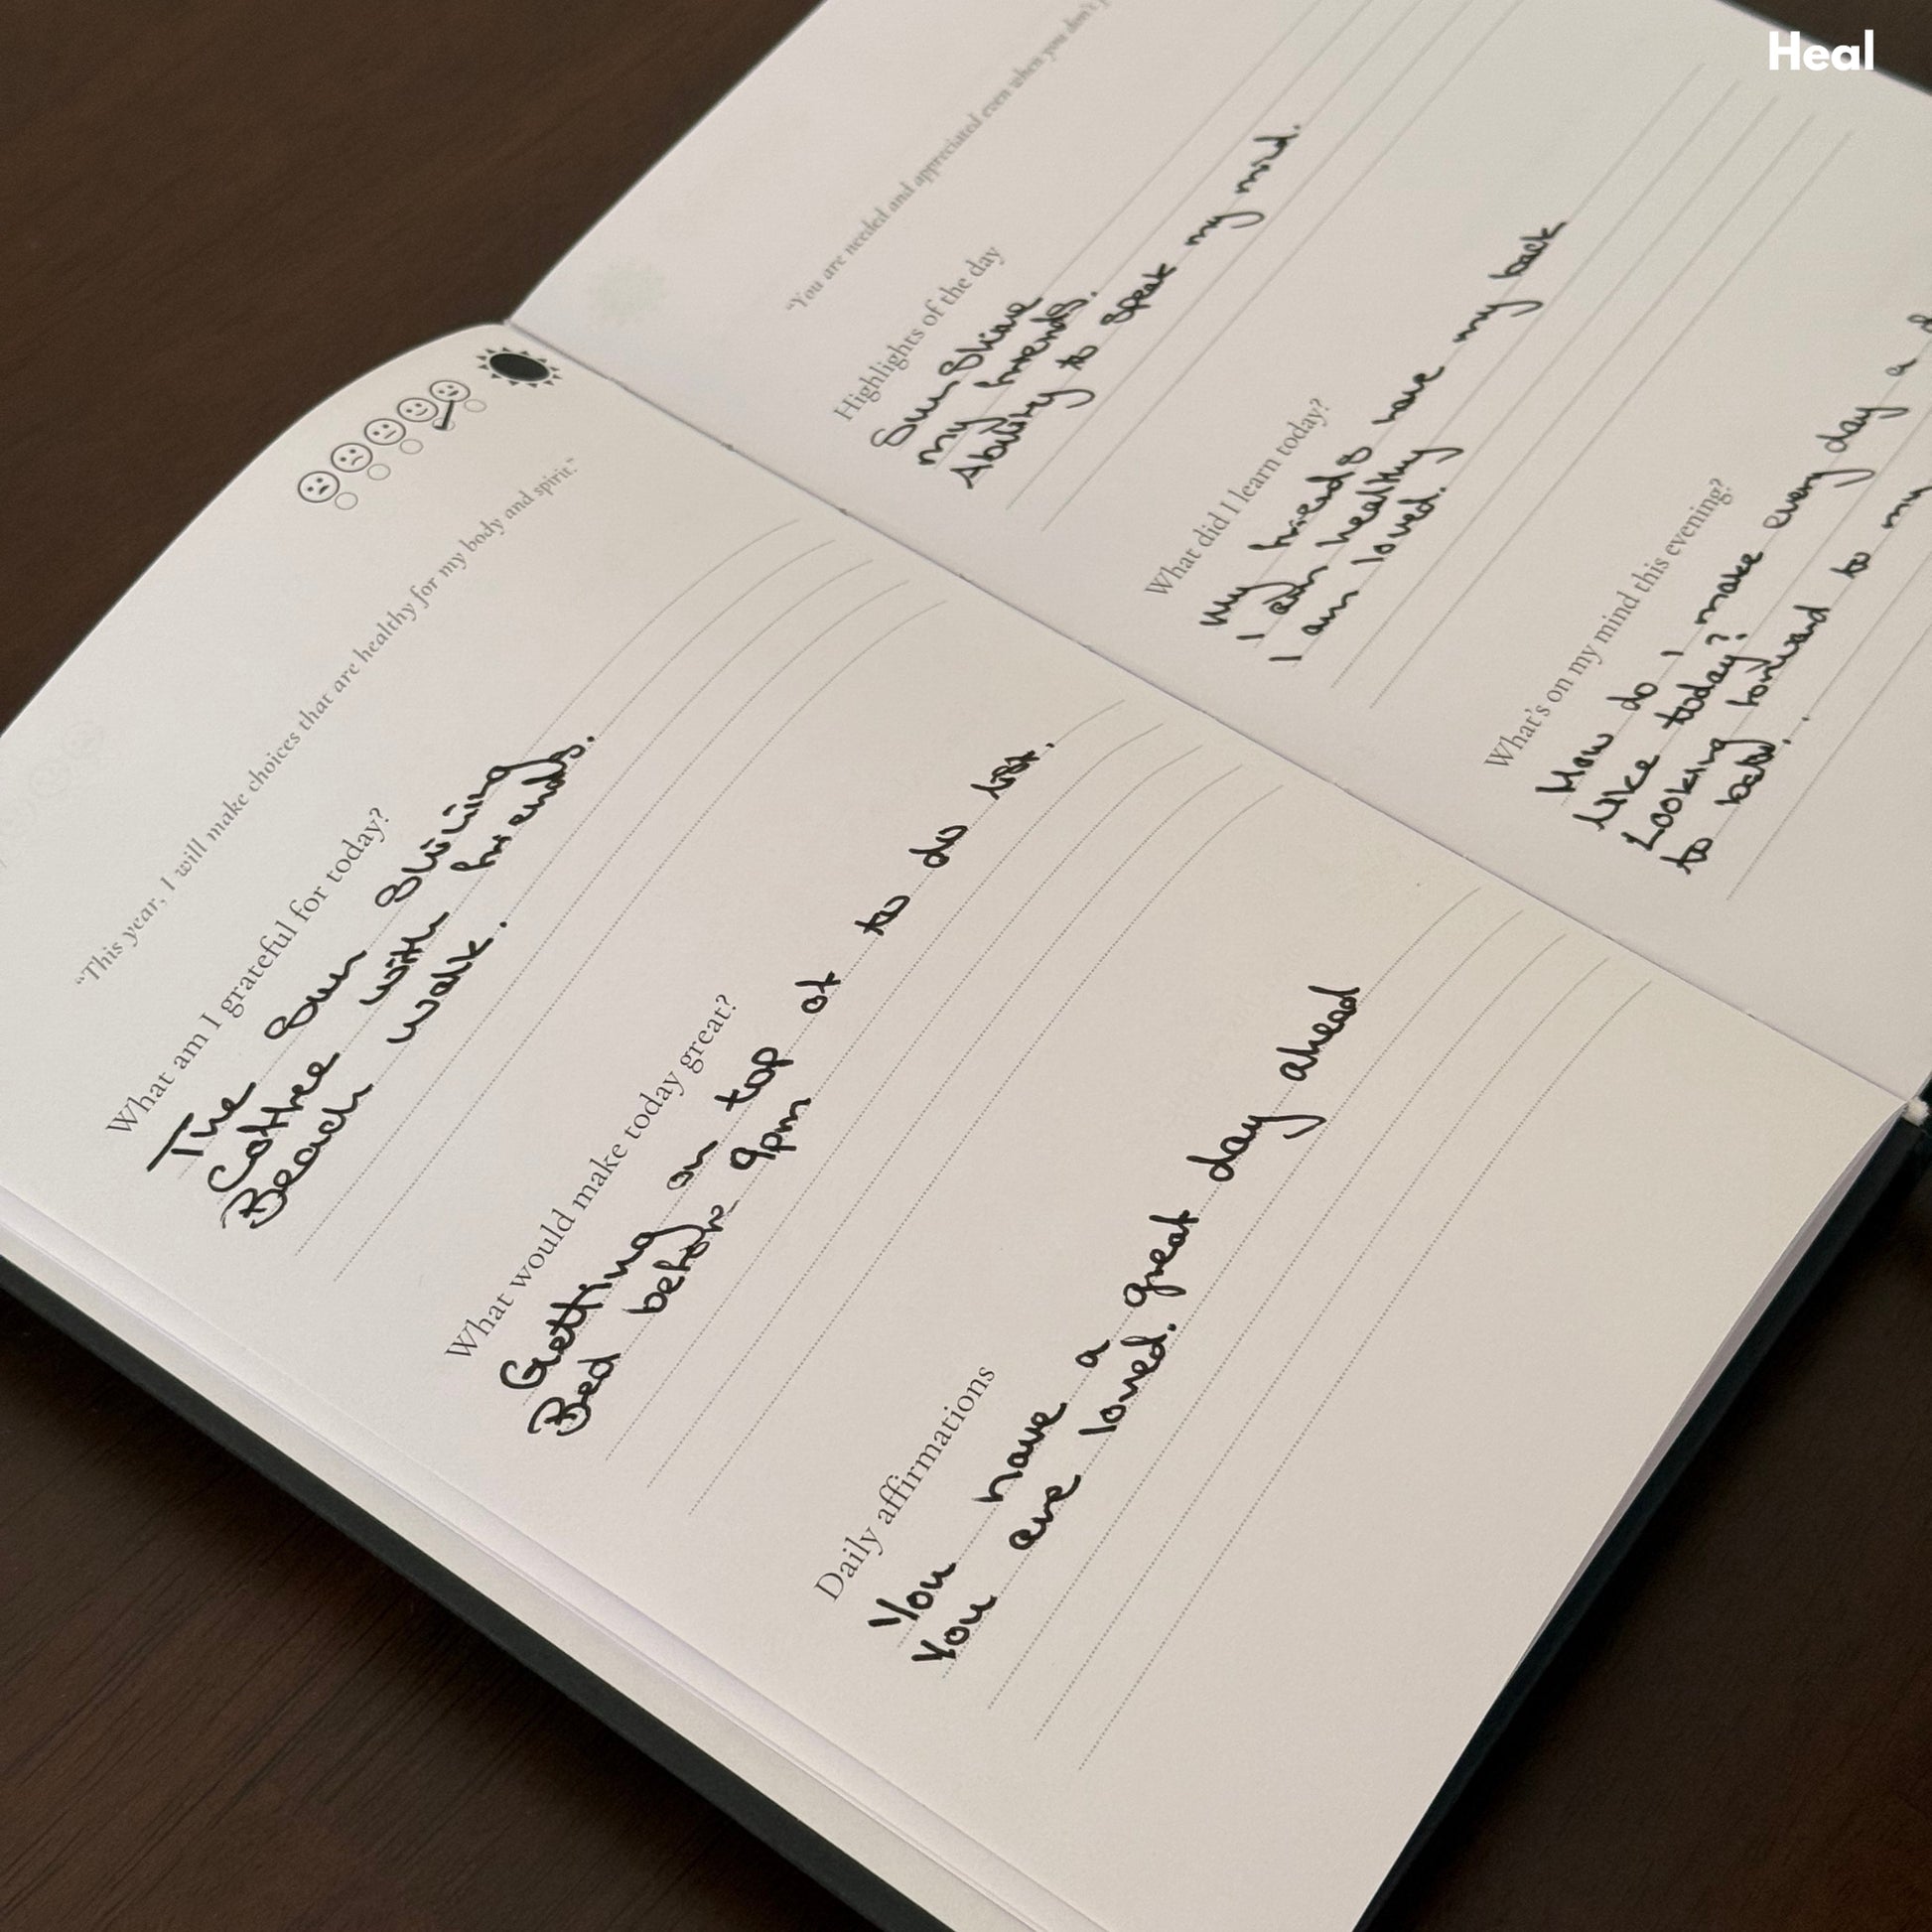 Heal
"This year, I will make choices that are healthy for my body and spirit."
What am I grateful for today?
The Sun Shining
Coffee with friends.
Beach walk.
What would make today great?
Getting on top of to do list.
Bed before 9pm
Daily affirmations
You have a great day ahead
You are loved.
"You are needed and appreciated even when you don't
Highlights of the day
Sun Shine
my friends.
Ability to speak my mind.
What did I learn today?
My friends have my back
I am healthy
I am loved.
What's on my mind this evening?
How do I make every day a
like today?
Looking forward to my
to bed!